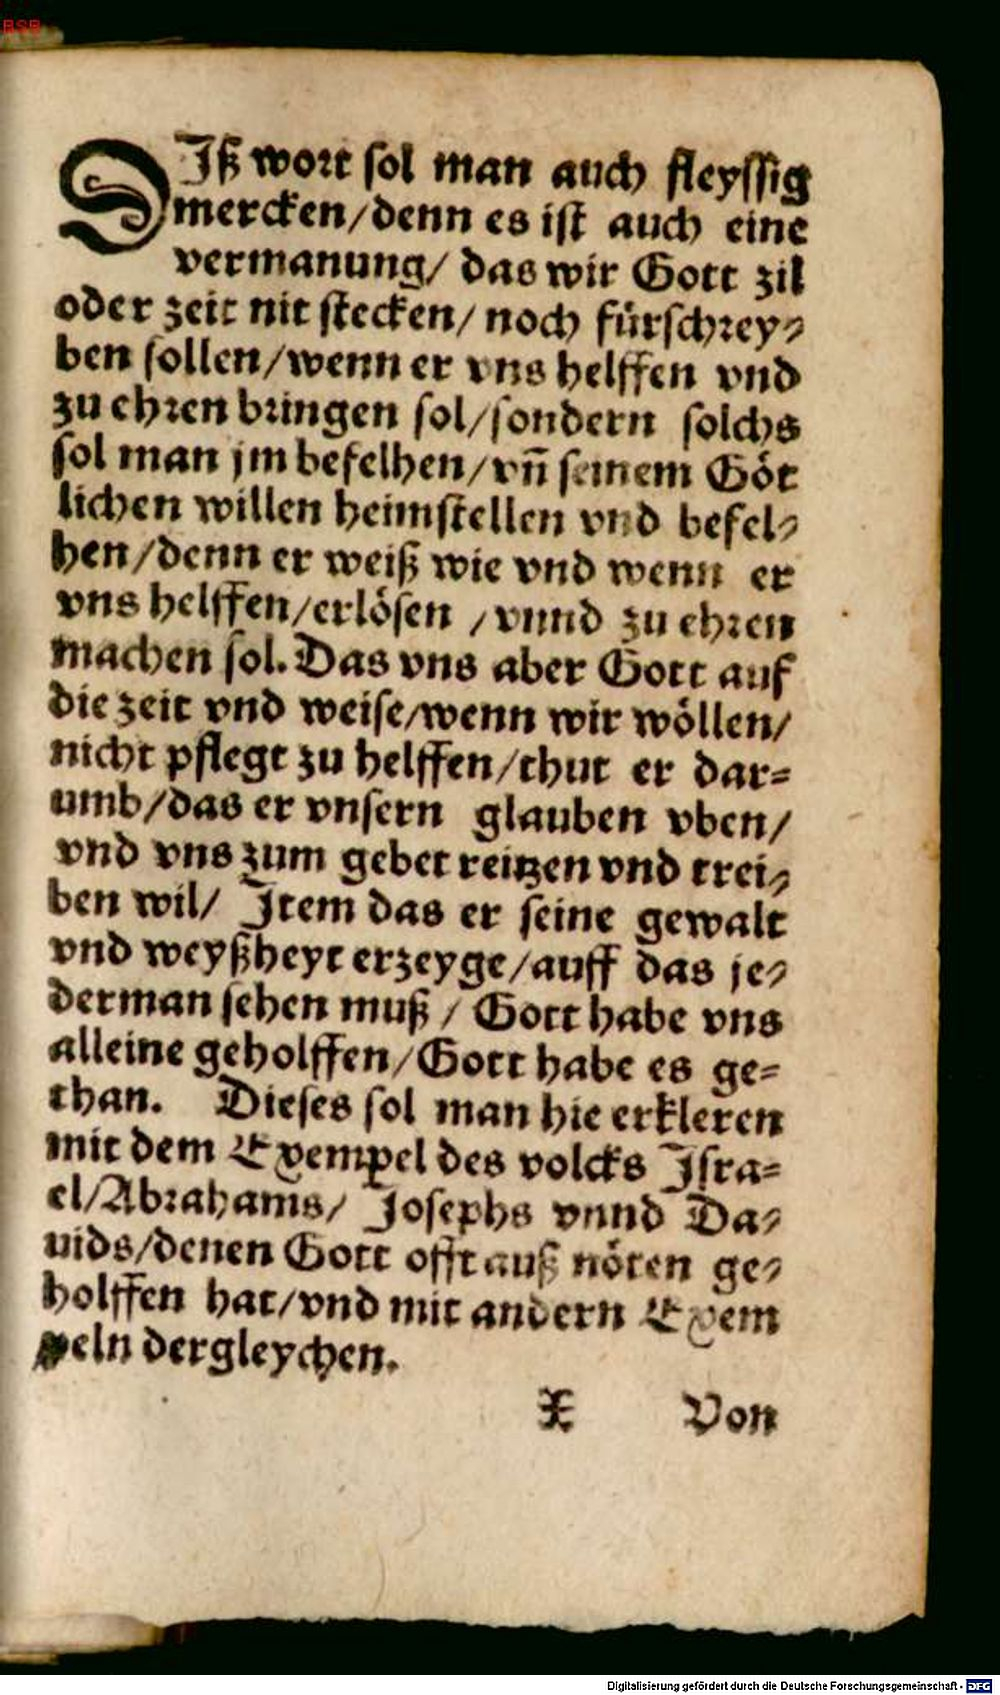 BSB
DIß wort sol man auch fleyssig
mercken/denn es ist auch eine
vermanung/ das wir Gott zil
oder zeit nit stecken/ noch fürschrey⸗
ben sollen/wenn er vns helffen vnd
zu ehren bringen sol/sondern solchs
sol man jm befelhen/vñ seinem Göt
lichen willen heimstellen vnd befel⸗
hen/denn er weiß wie vnd wenn er
vns helffen/erlösen /vnnd zu ehren
machen sol. Das vns aber Gott auf
die zeit vnd weise/wenn wir wöllen/
nicht pflegt zu helffen/thut er dar⸗
umb/das er vnsern glauben vben/
vnd vns zum gebet reitzen vnd trei⸗
ben wil/ Item das er seine gewalt
vnd weyßheyt erzeyge/auff das je⸗
derman sehen muß / Gott habe vns
alleine geholffen/Gott habe es ge⸗
than. Dieses sol man hie erkleren
mit dem Exempel des volcks Isra⸗
el/Abrahams/ Josephs vnnd Da⸗
uids/denen Gott offt auß nöten ge⸗
holffen hat/vnd mit andern Exem
peln dergleychen.
X Von
Digitalisierung gefördert durch die Deutsche Forschungsgemeinschaft - DFG